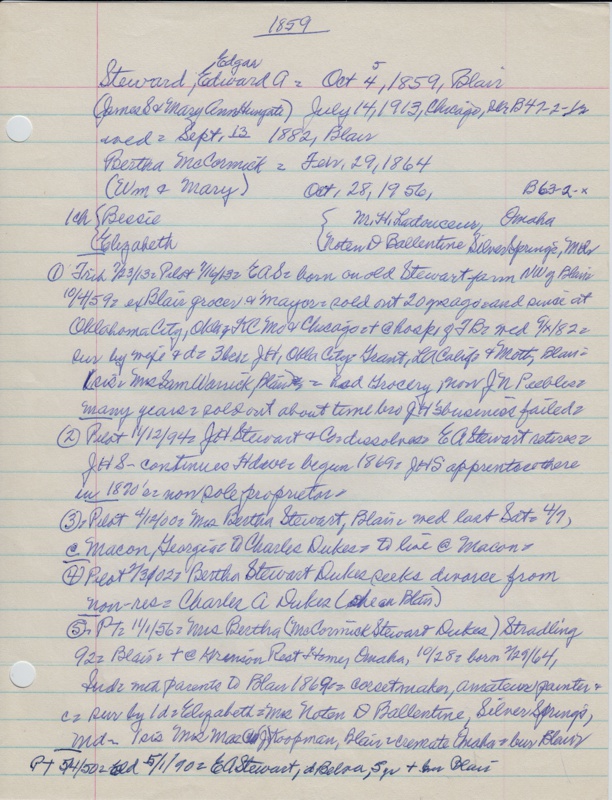 1859
Edgar 5
Steward, Edward A = Oct 4, 1859, Blair
(James S & Mary Ann Hungate) July 14, 1913, Chicago, B47-2-
wed = Sept. 13 1882, Blair
Bertha McCormick = Feb, 29, 1864
(Wm & Mary) Oct, 28, 1956, B63-2-x
1ch { Bessie { M. H. Ladouceur, Omaha
Elizabeth Noten D Ballentine Silver Springs, Md
① Trib 7/23/13 = Pilot 7/16/13 = EAS = born on old Stewart farm NW of Blair
10/4/59 = ex Blair grocer & Mayor = sold out 20 yrs ago = and since at
Oklahoma City, Okla = KC Mo & Chicago = + c hosp of TB = wed 9/ /82 =
sur by wife & d = 3 br = JH, Okla City = Grant, LA Calif & Mott, Blair =
1 sis = Mrs Sam Warrick, Blair = had grocery, now J N Peebles =
many years = sold out about time bro J H's business failed =
② Pilot 11/12/94 = JH Stewart & Co dissolves = EA Stewart retires =
JHS - continues Hdwe = begun 1869 = JHS apprentice there
in 1870's = now sole proprietor =
③ = Pilot 4/12/00 = Mrs Bertha Stewart, Blair = wed last Sat = 4/7,
c Macon, Georgia = to Charles Dukes = to live @ Macon =
④ Pilot 7/3/02 = Bertha Stewart Dukes seeks divorce from
non-res = Charles A Dukes (she in Blair)
⑤ = PT = 11/1/56 = Mrs Bertha (McCormick Stewart Dukes) Stradling
92 = Blair = + c Rest Home, Omaha, 10/28 = born 2/29/64,
Ind = with parents to Blair 1869 = corset maker, amateur painter =
c = sur by 1 d = Elizabeth = Mrs Noten D Ballentine, Silver Springs,
Md = 1 sis Mrs Mae Koopman, Blair = cremate Omaha = bur Blair
Pt 5/4/50 = Old 5/1/90 = EA Stewart, d Belva, 5 yr + bur Blair